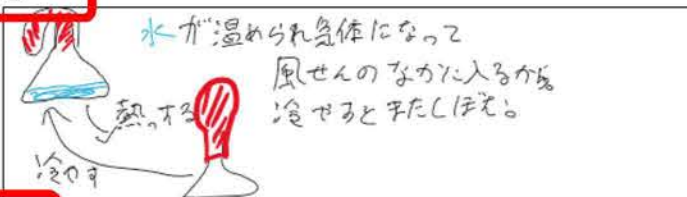 水が温められ気体になって
風せんのなかに入るから
冷やすとまたしぼむ。
熱っする
冷やす